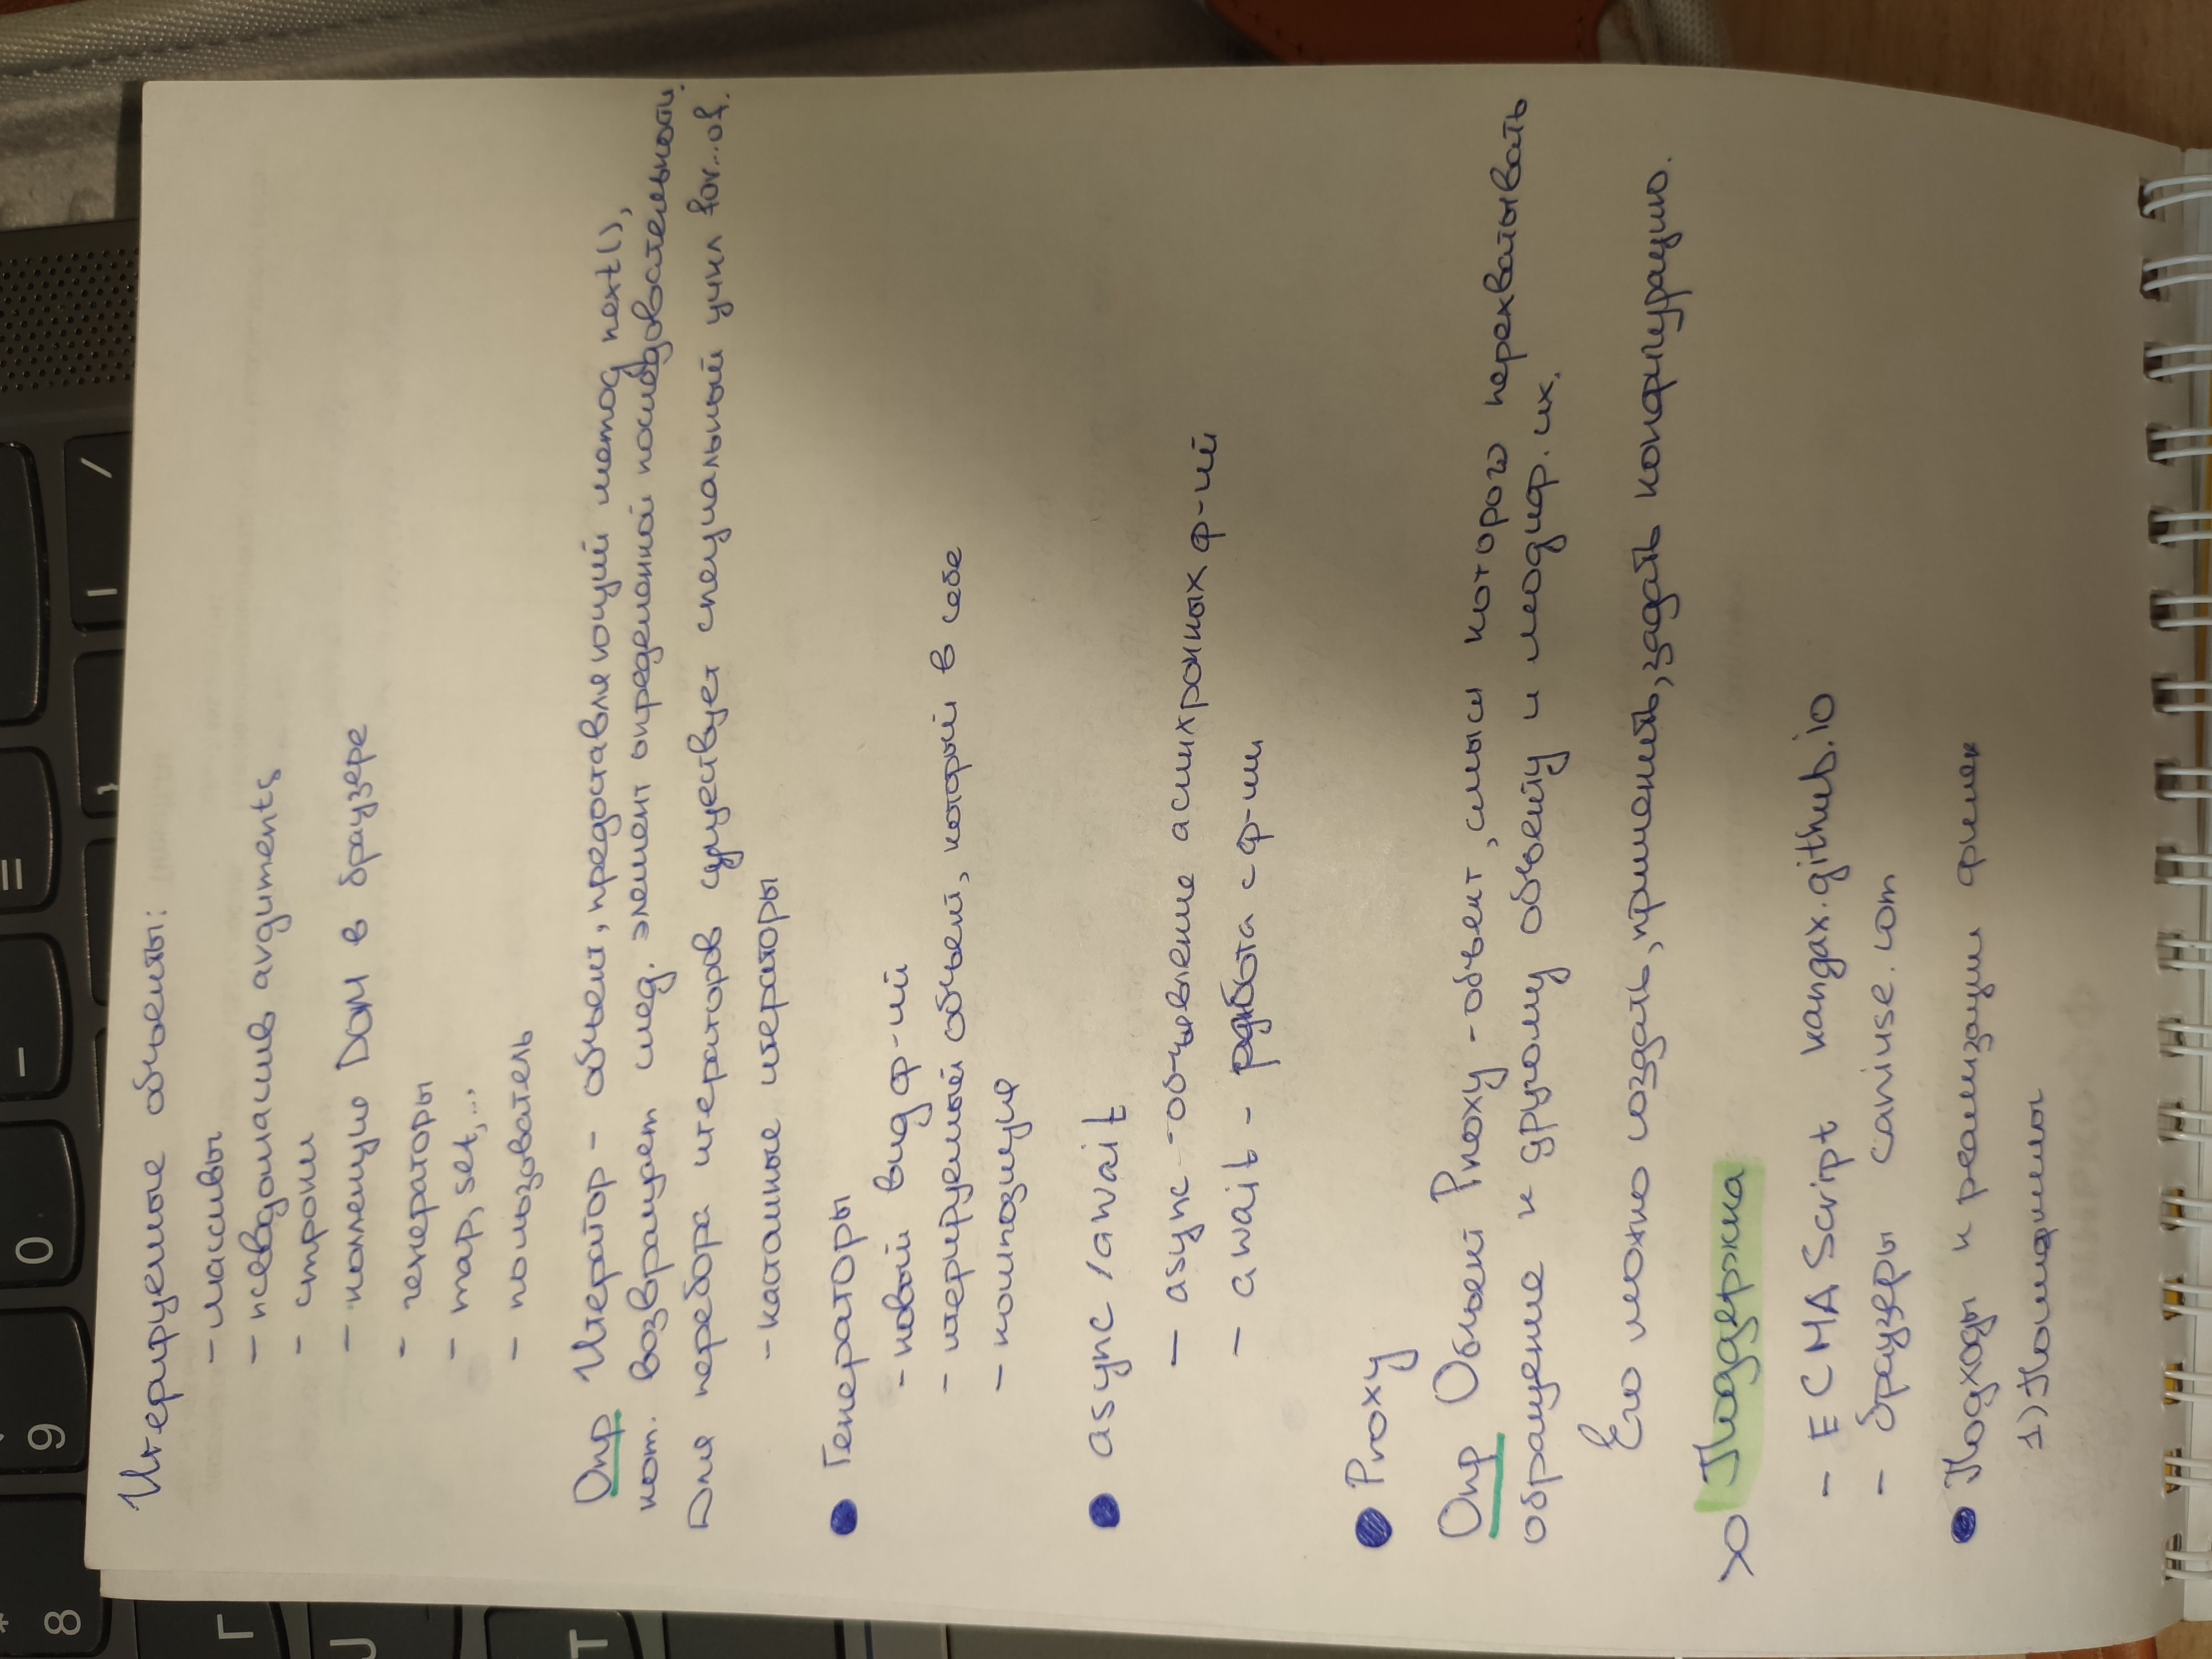 8
9
0
–
=
}
|
/
Г
J
Т
Итерируемые объекты:
- массивы
- псевдомассив arguments
- строки
- коллекции DOM в браузере
- генераторы
- map, set, ...
- пользователь
Опр Итератор - объект, предоставляющий метод next(),
кот. возвращает след. элемент определенной последовательности.
Для перебора итераторов существует специальный цикл for...of.
- кастомные итераторы
● Генераторы
- новый вид ф-ий
- итерируемый объект, который в себе
- композиция
● async/await
- async - объявление асинхронных ф-ий
- await - работа с ф-ии
● Proxy
Опр Объект Proxy - объект, смысл которого перехватывать
обращение к другому объекту и модиф. их.
Его можно создать, применить, задать конфигурацию.
Поддержка
- ECMAScript kangax.github.io
- браузеры caniuse.com
● Подходы к реализации фичек
1) Полифилы